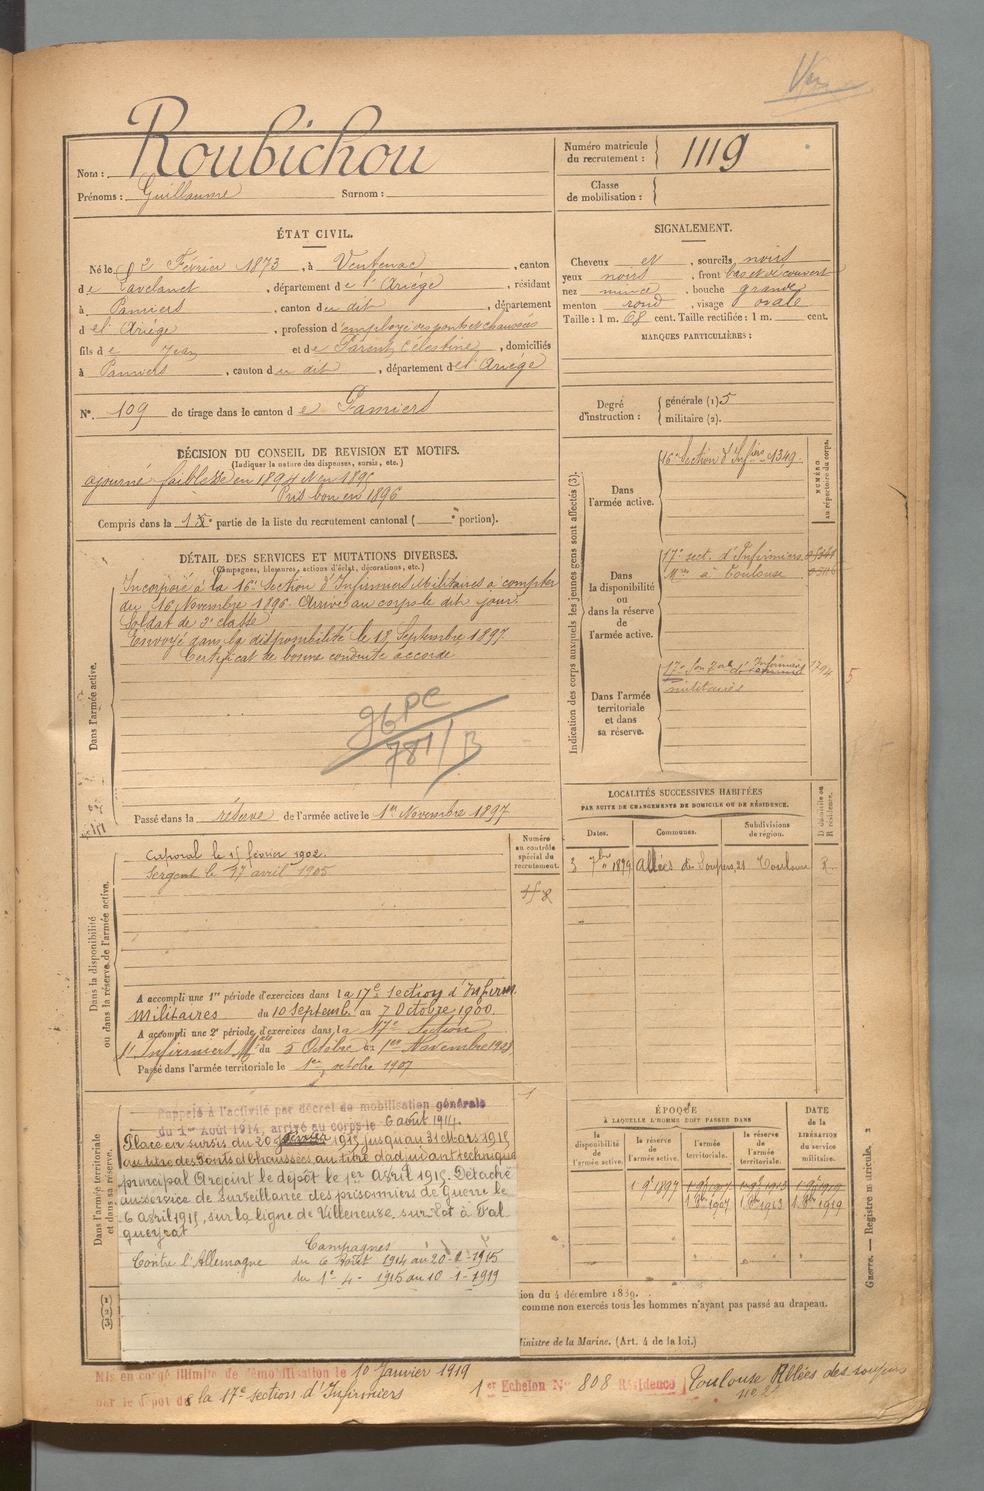 Nom : Roubichou
Prénoms : Guillaume Surnom :
Numéro matricule
du recrutement : 1119
Classe
de mobilisation :
ÉTAT CIVIL.
Né le 2 Février 1873, à Ventenac, canton
de Lavelanet, département de l'Ariège, résidant
à Pamiers, canton du dit, département
de l'Ariège, profession d'employé des ponts et chaussées
fils de Jean et de Parent, Célestine, domiciliés
à Pamiers, canton du dit, département de l'Ariège
N° 109 de tirage dans le canton de Pamiers
SIGNALEMENT.
Cheveux et, sourcils noirs
yeux noirs, front bas et découvert
nez mince, bouche grande
menton rond, visage ovale
Taille : 1 m. 68 cent. Taille rectifiée : 1 m. cent.
MARQUES PARTICULIÈRES :
Degré
d'instruction :
générale (1) 5
militaire (2).
DÉCISION DU CONSEIL DE REVISION ET MOTIFS.
(Indiquer la nature des dispenses, sursis, etc.)
ajourné faiblesse en 1894 et en 1895
Pris bon en 1896
Compris dans la 1re partie de la liste du recrutement cantonal ( e portion).
DÉTAIL DES SERVICES ET MUTATIONS DIVERSES.
(Campagnes, blessures, actions d'éclat, décorations, etc.)
Dans l'armée active.
Incorporé à la 16e Section d'Infirmiers Militaires à compter
du 16 Novembre 1896. Arrivé au corps le dit jour.
Soldat de 2e classe
Envoyé dans la disponibilité le 18 Septembre 1897
Certificat de bonne conduite accordé
96 PC
781/B
Passé dans la réserve de l'armée active le 1er Novembre 1897
Indication des corps auxquels les jeunes gens sont affectés (3).
NUMÉRO
au répertoire du corps.
Dans
l'armée active.
16e Section d'Infiers 1349.
Dans
la disponibilité
ou
dans la réserve
de
l'armée active.
17e sect. d'Infirmiers
Mres à Toulouse
Dans l'armée
territoriale
et dans
sa réserve.
17e Son d'Infirmiers 1794
militaires
5
LOCALITÉS SUCCESSIVES HABITÉES
PAR SUITE DE CHANGEMENTS DE DOMICILE OU DE RÉSIDENCE.
Dates. Communes. Subdivisions
de région.
D domicile ou
R résidence.
3 7bre 1899 Allées des Soupirs, 21 Toulouse R.
Dans la disponibilité
ou dans la réserve de l'armée active.
Numéro
au contrôle
spécial du
recrutement.
Caporal le 15 février 1902.
Sergent le 27 avril 1905
A accompli une 1re période d'exercices dans la 17e section d'Infirm.
Militaires du 10 Septemb. au 7 Octobre 1900.
A accompli une 2e période d'exercices dans la 17e Section
d'Infirmiers Mres du 5 Octobre au 1er Novembre 1903
Passé dans l'armée territoriale le 1er octobre 1907
Dans l'armée territoriale
et dans sa réserve.
Rappelé à l'activité par décret de mobilisation générale
du 1er Août 1914, arrivé au corps le 6 août 1914.
Placé en sursis du 20 février 1915 jusqu'au 31 Mars 1915
au titre des Ponts et Chaussées au titre d'adjudant technique
principal A rejoint le dépôt le 1er Avril 1915. Détaché
au service de surveillance des prisonniers de guerre le
6 Avril 1915, sur la ligne de Villeneuve-sur-Lot à Fal
gueyrat
Campagnes
Contre l'Allemagne du 6 Août 1914 au 20-2-1915
du 1er-4-1915 au 10-1-1919
ÉPOQUE
À LAQUELLE L'HOMME DOIT PASSER DANS
DATE
de la
LIBÉRATION
du service
militaire.
la
disponibilité
de
l'armée active.
la réserve
de
l'armée active.
l'armée
territoriale.
la réserve
de l'armée
territoriale.
1 9e 1897 1 9e 1907 1 9e 1913 1 9e 1919
1 8bre 1907 1 8bre 1913 1 8bre 1919
(1)
(2)
(3)
ion du 4 décembre 1889.
comme non exercés tous les hommes n'ayant pas passé au drapeau.
Ministre de la Marine. (Art. 4 de la loi.)
Guerre. — Registre matricule. 2
Mis en congé illimité de démobilisation le 10 Janvier 1919
par le dépôt de la 17e section d'Infirmiers
1er Echelon N° 808 Résidence Toulouse Allées des soupirs
n° 21